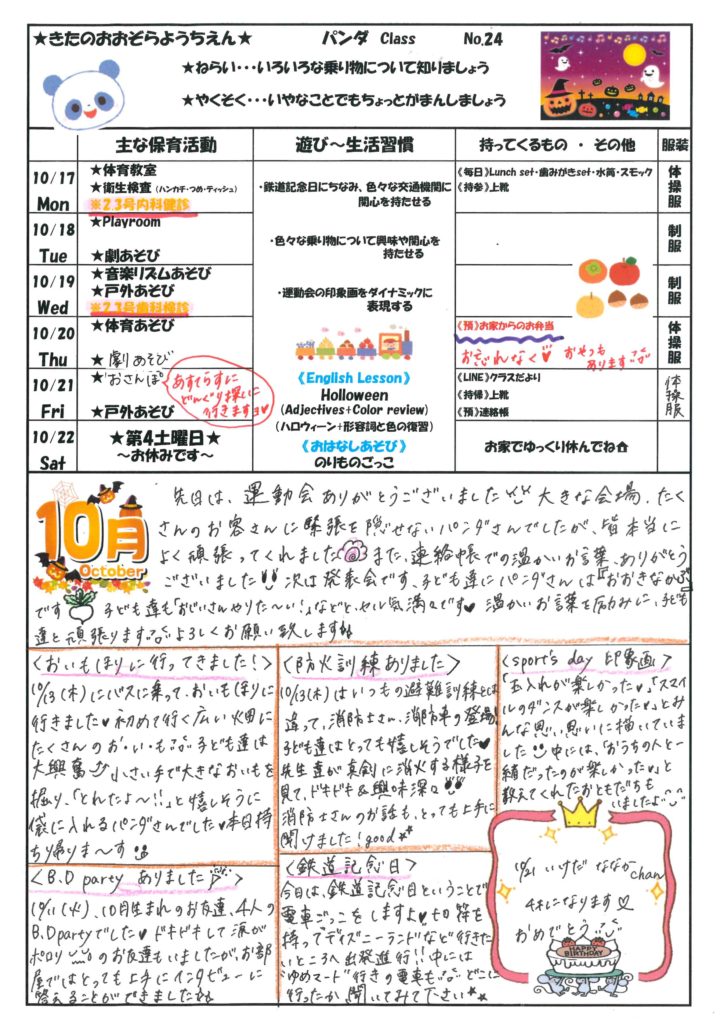 ★きたのおおぞらようちえん★ パンダ Class No.24
★ねらい・・・いろいろな乗り物について知りましょう
★やくそく・・・いやなことでもちょっとがまんしましょう
主な保育活動 遊び～生活習慣 持ってくるもの ・ その他 服装
10/17 Mon
★体育教室
★衛生検査 (ハンカチ・つめ・ティッシュ)
※2.3号内科健診
・鉄道記念日にちなみ、色々な交通機関に
関心を持たせる
《毎日》Lunch set・歯みがきset・水筒・スモック
《持参》上靴
体操服
10/18 Tue
★Playroom
★劇あそび
・色々な乗り物について興味や関心を
持たせる
制服
10/19 Wed
★音楽リズムあそび
★戸外あそび
※2.3号歯科検診
・運動会の印象画をダイナミックに
表現する
制服
10/20 Thu
★体育あそび
★劇あそび
《預》お家からのお弁当
おそれなく♥ おやつも
あります
体操服
10/21 Fri
★おさんぽ
あすてらすに
どんぐり探しに
行きますョ♥
★戸外あそび
《English Lesson》
Holloween
(Adjectives+Color review)
(ハロウィーン+形容詞と色の復習)
《LINE》クラスだより
《持帰》上靴
《預》連絡帳
体操服
10/22 Sat
★第4土曜日★
～お休みです～
《おはなしあそび》
のりものごっこ
お家でゆっくり休んでね
10月
October
先日は、運動会ありがとうございました 大きな会場、たく
さんのお客さんに緊張を隠せないパンダさんでしたが、皆本当に
よく頑張ってくれました また、連絡帳での温かいお言葉、ありがとう
ございました!! 次は発表会です、子ども達にパンダさんは『おおきなかぶ』
です 子ども達も「おじいさんやりた～い!」などと、やる気満々です♥ 温かいお言葉を励みに、子ども
達と頑張ります よろしくお願い致します
〈おいもほりに行ってきました!〉
10/13(木)にバスに乗って、おいもほりに
行きました♥初めて行く広い畑に
たくさんのお・い・も 子ども達は
大興奮 小さい手で大きなおいもを
掘り、「とれたよ～!!」と嬉しそうに
袋に入れるパンダさんでした♥本日持
ち帰りま～す
〈防火訓練ありました〉
10/13(木)はいつもの避難訓練とは
違って、消防士さん、消防車の登場!
子ども達はとっても嬉しそうでした♥
先生達が真剣に消火する様子を
見て、ドキドキ&興味深々
消防士さんのお話も、とっても上手に
聞けました!good★
〈sport's day 印象画〉
「玉入れが楽しかった♥」「スマイ
ルのダンスが楽しかった♥」とみ
んな思い思いに描いていま
した 中には、「おうちの人と一
緒だったのが楽しかった♥」と
教えてくれたおともだちも
いましたよ
〈B.D party ありました〉
10/11(火)、10月生まれのお友達、4人の
B.D partyでした♥ ドキドキして涙が
ポロリ のお友達もいましたが、お部
屋ではとっても上手にインタビューに
答えることができました
〈鉄道記念日〉
今日は、鉄道記念日ということで
電車ごっこをしますよ♥切符を
持って"ディズニーランド"など行きた
いところへ出発進行!! 中には
"ゆめマート"行きの電車も どこに
行ったか聞いてみて下さい
10/21 いけだ ななか chan
4才になります♡
おめでとう
HAPPY BIRTHDAY